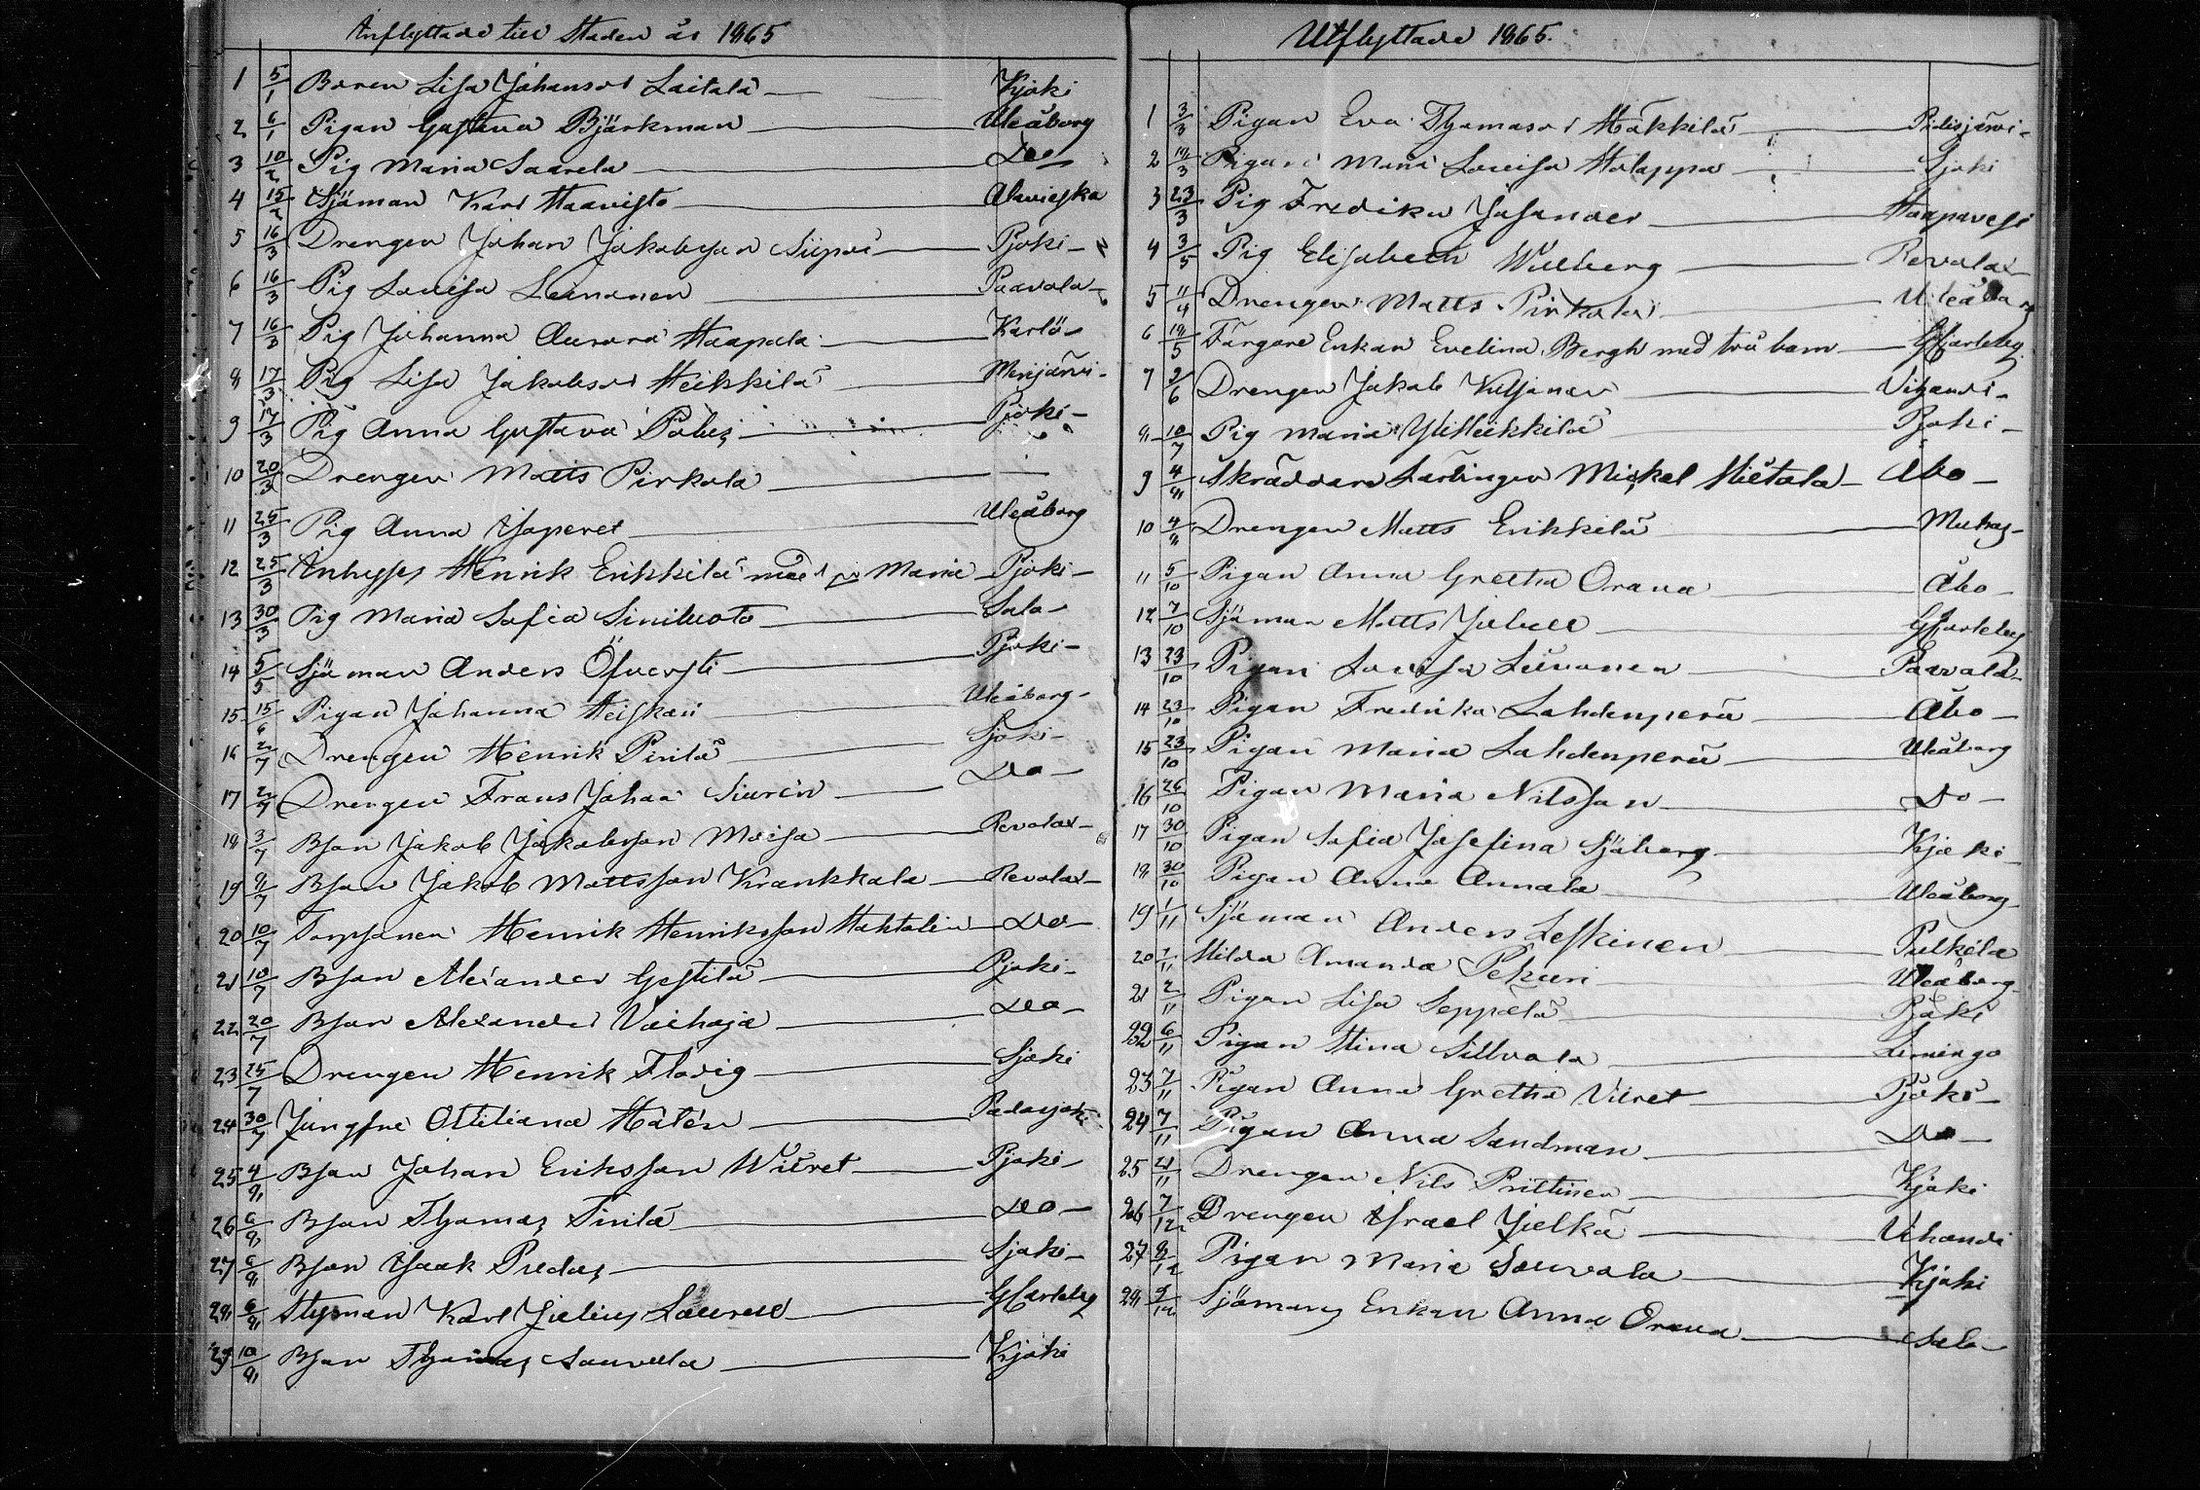 Inflyttade till Staden år 1865
1 5/1 Boren Lisa Johansdr Laitala Kjoki
2 6/1 Pigan Gustava Björkman Uleåborg
3 10/2 Pig Maria Saarela Do
4 15/2 Sjöman Karl Haavisto Alavieska
5 16/3 Drengen Johan Jakobsson Siipo Pjoki
6 16/3 Pig Lovisa Leinonen Paavola
7 16/3 Pig Johanna Aurora Haapala Karlö
8 17/3 Pig Lisa Jakobsdr Heikkilä Merijärvi
9 17/3 Pig Anna Gustava Palus Pjoki
10 20/3 Drengen Matts Pirkola —
11 25/3 Pig Anna Uleåborg
12 25/3 Inhyses Henrik Erikkilä med Maria Pjoki
13 30/3 Pig Maria Sofia Siniluoto Salo
14 5/5 Sjöman Anders Öfversti Pjoki
15 15/6 Pigan Johanna Heiskari Uleåborg
16 2/7 Drengen Henrik Pirilä Sjoki
17 2/7 Drengen Frans Johan Siuren Do
18 3/7 Bson Jakob Jakobsson Moisa Revolax
19 8/7 Bson Jakob Mattsson Krankkala Revolax
20 10/7 Henrik Henriksson Do
21 10/7 Bson Alexander Gestilä Pjoki
22 20/7 Bson Alexander Vaihoja Do
23 25/7 Drengen Henrik Florig Sjoki
24 30/7 Jungfru Ottiliana Hatén Padasjoki
25 4/8 Bson Johan Eriksson Wiiret Pjoki
26 6/8 Bson Thomas Pirilä Do
27 6/8 Bson Isaak Predas Sjoki
28 6/8 Styrman Karl Julius Laurell GCarleby
29 10/8 Bson Thomas Sauvala Kjoki
Utflyttade 1865.
1 3/3 Pigan Eva Thomasdr Häkkilä Pidisjärvi
2 18/3 Pigan Maria Lovisa Halappa Sjoki
3 23/3 Pig Fredika Josander Haapavesi
4 3/5 Pig Elisabeth Willberg Revolax
5 11/4 Drengen Matts Pirkola Uleåborg
6 18/5 Färgare Enkan Evelina Bergh med två barn GCarleby
7 2/6 Drengen Jakob Vihandi
8 10/7 Pig Maria YliHeikkilä Pjoki
9 4/8 Skräddare Lärlingen Mickel Hietala Åbo
10 4/8 Drengen Matts Erikkilä Muhos
11 5/10 Pigan Anna Gretha Orava Åbo
12 7/10 Sjöman Matts Juhell GCarleby
13 23/10 Pigan Lovisa Leinonen Paavola
14 23/10 Pigan Fredrika Lahdenperä Åbo
15 23/10 Pigan Maria Lahdenperä Uleåborg
16 26/10 Pigan Maria Nilsson Do
17 30/10 Pigan Sofia Josefina Sjöberg Kjoki
18 30/10 Pigan Anna Annala Uleåborg
19 1/11 Sjöman Anders Leskinen Pulkila
20 1/11 Hilda Amanda Pekuri Uleåborg
21 2/11 Pigan Lisa Seppälä Pjoki
22 6/11 Pigan Stina Sillvala Limingo
23 7/11 Pigan Anna Gretha Viiret Pjoki
24 7/11 Pigan Anna Sandman Do
25 21/11 Drengen Nils Prittinen Kjoki
26 7/12 Drengen Israel Jielkä Vihandi
27 8/12 Pigan Maria Sauvala Kjoki
28 9/12 Sjömans Enkan Anna Orava Salo